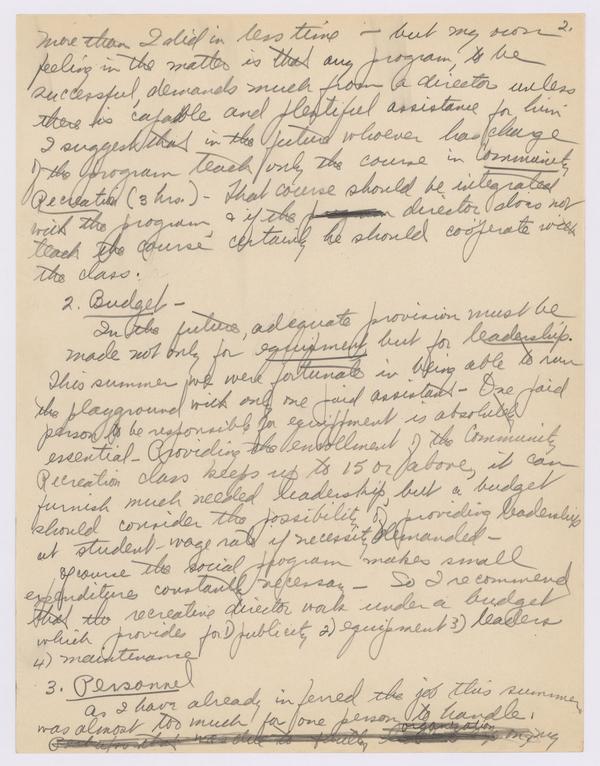 2.
more than I did in less time - but my own
feeling in the matter is that any program, to be
successful, demands much from a director unless
there is capable and plentiful assistance for him
I suggest that in the future whoever has charge
of the program teach only the course in Community
Recreation (3 hrs.) - That course should be integrated
with the program, & if the director does not
teach the course certainly he should coöperate with
the class.
2. Budget -
In the future, adequate provision must be
made not only for equipment but for leadership.
This summer we were fortunate in being able to run
the playground with only one paid assistant - One paid
person to be responsible for equippment is absolutely
essential - Providing the enrollment of the Community
Recreation class keeps up to 15 or above, it can
furnish much needed leadership but a budget
should consider the possibility of providing leadership
at student-wage rate if necessity demanded -
Of course the social program makes small
expenditures constantly necessary - So I recommend
that the recreation director work under a budget
which provides for 1) publicity 2) equipment 3) leaders
4) maintenance
3. Personnel
As I have already inferred the job this summer
was almost too much for one person to handle.
Perhaps that was due to faulty organization on my